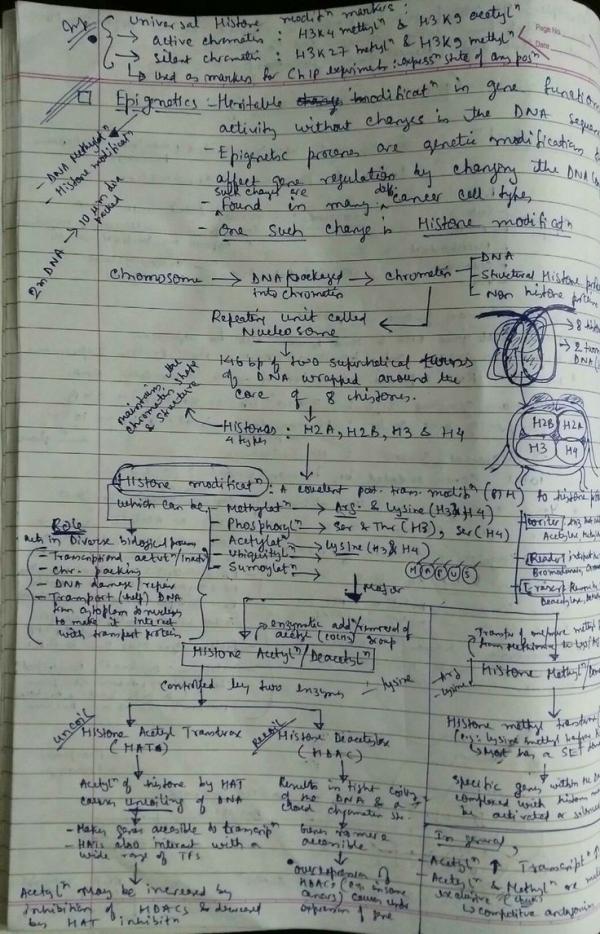 Imp
Universal Histone modifⁿ markers :
→ active chromatin : H3K4 methylⁿ & H3K9 acetylⁿ
→ Silent chromatin : H3K27 methylⁿ & H3K9 methylⁿ
↳ Used as markers for ChIP experiments : expresⁿ state of any posⁿ
Page No.
Date
Epigenetics :- Heritable modificatⁿ in gene function
activity without changes in the DNA sequen
- Epigenetic process are genetic modifications t
affect gene regulation by changing the DNA
such changes are
- Found in many cancer cell types
- One Such change is Histone modificatⁿ
- DNA Methylatⁿ
- Histone modificatⁿ
2m DNA → 10 μm dia
packed
Chromosome → DNA packaged → Chromatin
into chromatin
DNA
Structural Histone prote
Non histone protein
Repeating unit called
Nucleosome
→ 8 histo
→ 2 turn
DNA
146 bp of two superhelical turns
of DNA wrapped around the
core of 8 histones.
maintains the
chromatin shape
& structure
Histones : H2A, H2B, H3 & H4
4 types
H2B
H2A
H3
H4
Histone modificatⁿ : A covalent post. trans. modifⁿ (PTM) to histone prote
which can be
- Methylatⁿ → Arg. & Lysine (H3 & H4)
- Phosphorylⁿ → Ser & Thr (H3), Ser (H4)
- Acetylatⁿ → Lysine (H3 & H4)
- Ubiquitylⁿ →
- Sumoylatⁿ →
Role
Acts in Diverse biological process
- Transcriptional activⁿ/inactivⁿ
- Chr. packing
- DNA damage/repair
- Transport (help) DNA
from cytoplasm to nucleus
to make it interact
with transport protein
Writer
Reader
Eraser
Major
→ enzymatic addⁿ/removal of
acetyl (COCH3) group
Histone Acetylⁿ/Deacetylⁿ
- lysine
Controlled by two enzymes
uncoil
Histone Acetyl Transferase
(HATs)
Acetylⁿ of histone by HAT
causes uncoiling of DNA
- Makes genes accesible to transcripⁿ
- HATs also interact with a
wide range of TFs
Acetylⁿ may be increased by
inhibition of HDACs & decreased
by HAT inhibitⁿ
Histone Deacetylase
(HDAC)
Results in tight coiling
of the DNA & a
closed chromatin
Genes no more
accessible
Overexpression of
HDACs (eg. in some
cancers) causes under
expression of gene
Arg
Lysine
Histone Methylⁿ/
Histone methyl transferase
(eg: lysine methyl
↳ Most has a SET
Specific genes within the D
complexed with histone
be activated or silence
In general,
- Acetylⁿ ↑ Transcriptⁿ ↑
- Acetylⁿ & Methylⁿ are
exclusive
↳ competitive antagonism